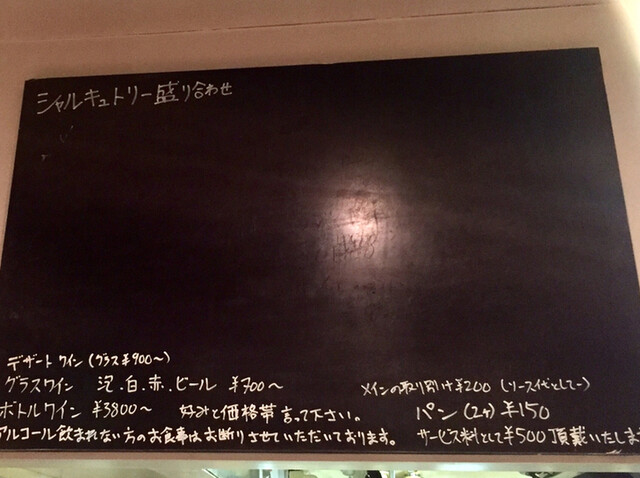 シャルキュトリー盛り合わせ
デザートワイン (グラス¥900～)
グラスワイン 泡.白.赤.ビール ¥700～
メインの取り分け¥200 (ソース代として-)
ボトルワイン ¥3800～ 好みと価格帯言って下さい。
パン(2ヶ) ¥150
アルコール飲まれない方のお食事はお断りさせていただいております。
サービス料として¥500頂戴いたします